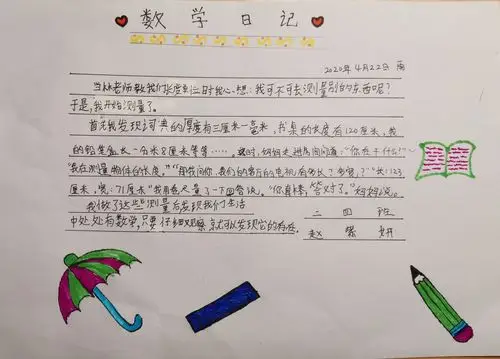 数学日记
2020年4月22日 雨
当林老师教我们长度单位时我心想：我可不可去测量别的东西呢？
于是，我开始测量了。
首先我发现词典的厚度有三厘米一毫米，书桌的长度有120厘米，我
的铅笔盒长一分米8厘米等等……这时，妈妈走进房间问道：“你在干什么？”
“我在测量物体的长度。”“那我问你，我们的客厅的电视有多长？多宽？”“长123
厘米，宽：71厘米”我用卷尺量了一下回答说。“你真棒，答对了。”妈妈说。
我做了这些测量后发现我们生活
中处处有数学，只要仔细观察就可以发现它的存在。
二四班
赵 妍